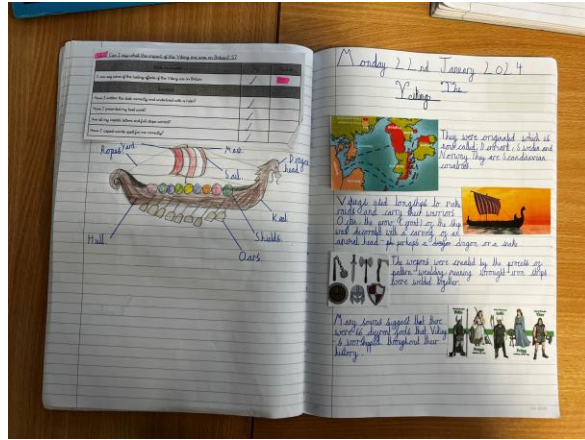 Can I say what the impact of the Viking era was on Britain? S7
I can say some of the lasting effects of the Viking era on Britain
Have I written the date correctly and underlined with a ruler?
Have I presented my best work?
Are all my capital letters and full stops correct?
Have I copied words spelt for me correctly?
Ropes
Yard.
Mast
Sail
Dragon
head
Keel
Shields
Oars
Hull
Monday 22nd January 2024
The
Vikings
They were originated which is
now called; Denmark, Sweden and
Norway. They are Scandinavian
countries.
Vikings used longships to make
raids and carry their warriors
Often, the prow (front) of the ship
was decorated with a carving of an
animal head - perhaps a dragon or a snake
The weapons were created by the process of
pattern welding meaning wrought iron strips
were welded together.
Many sources suggest that there
were 66 different gods that Viking
s worshipped throughout their
history.